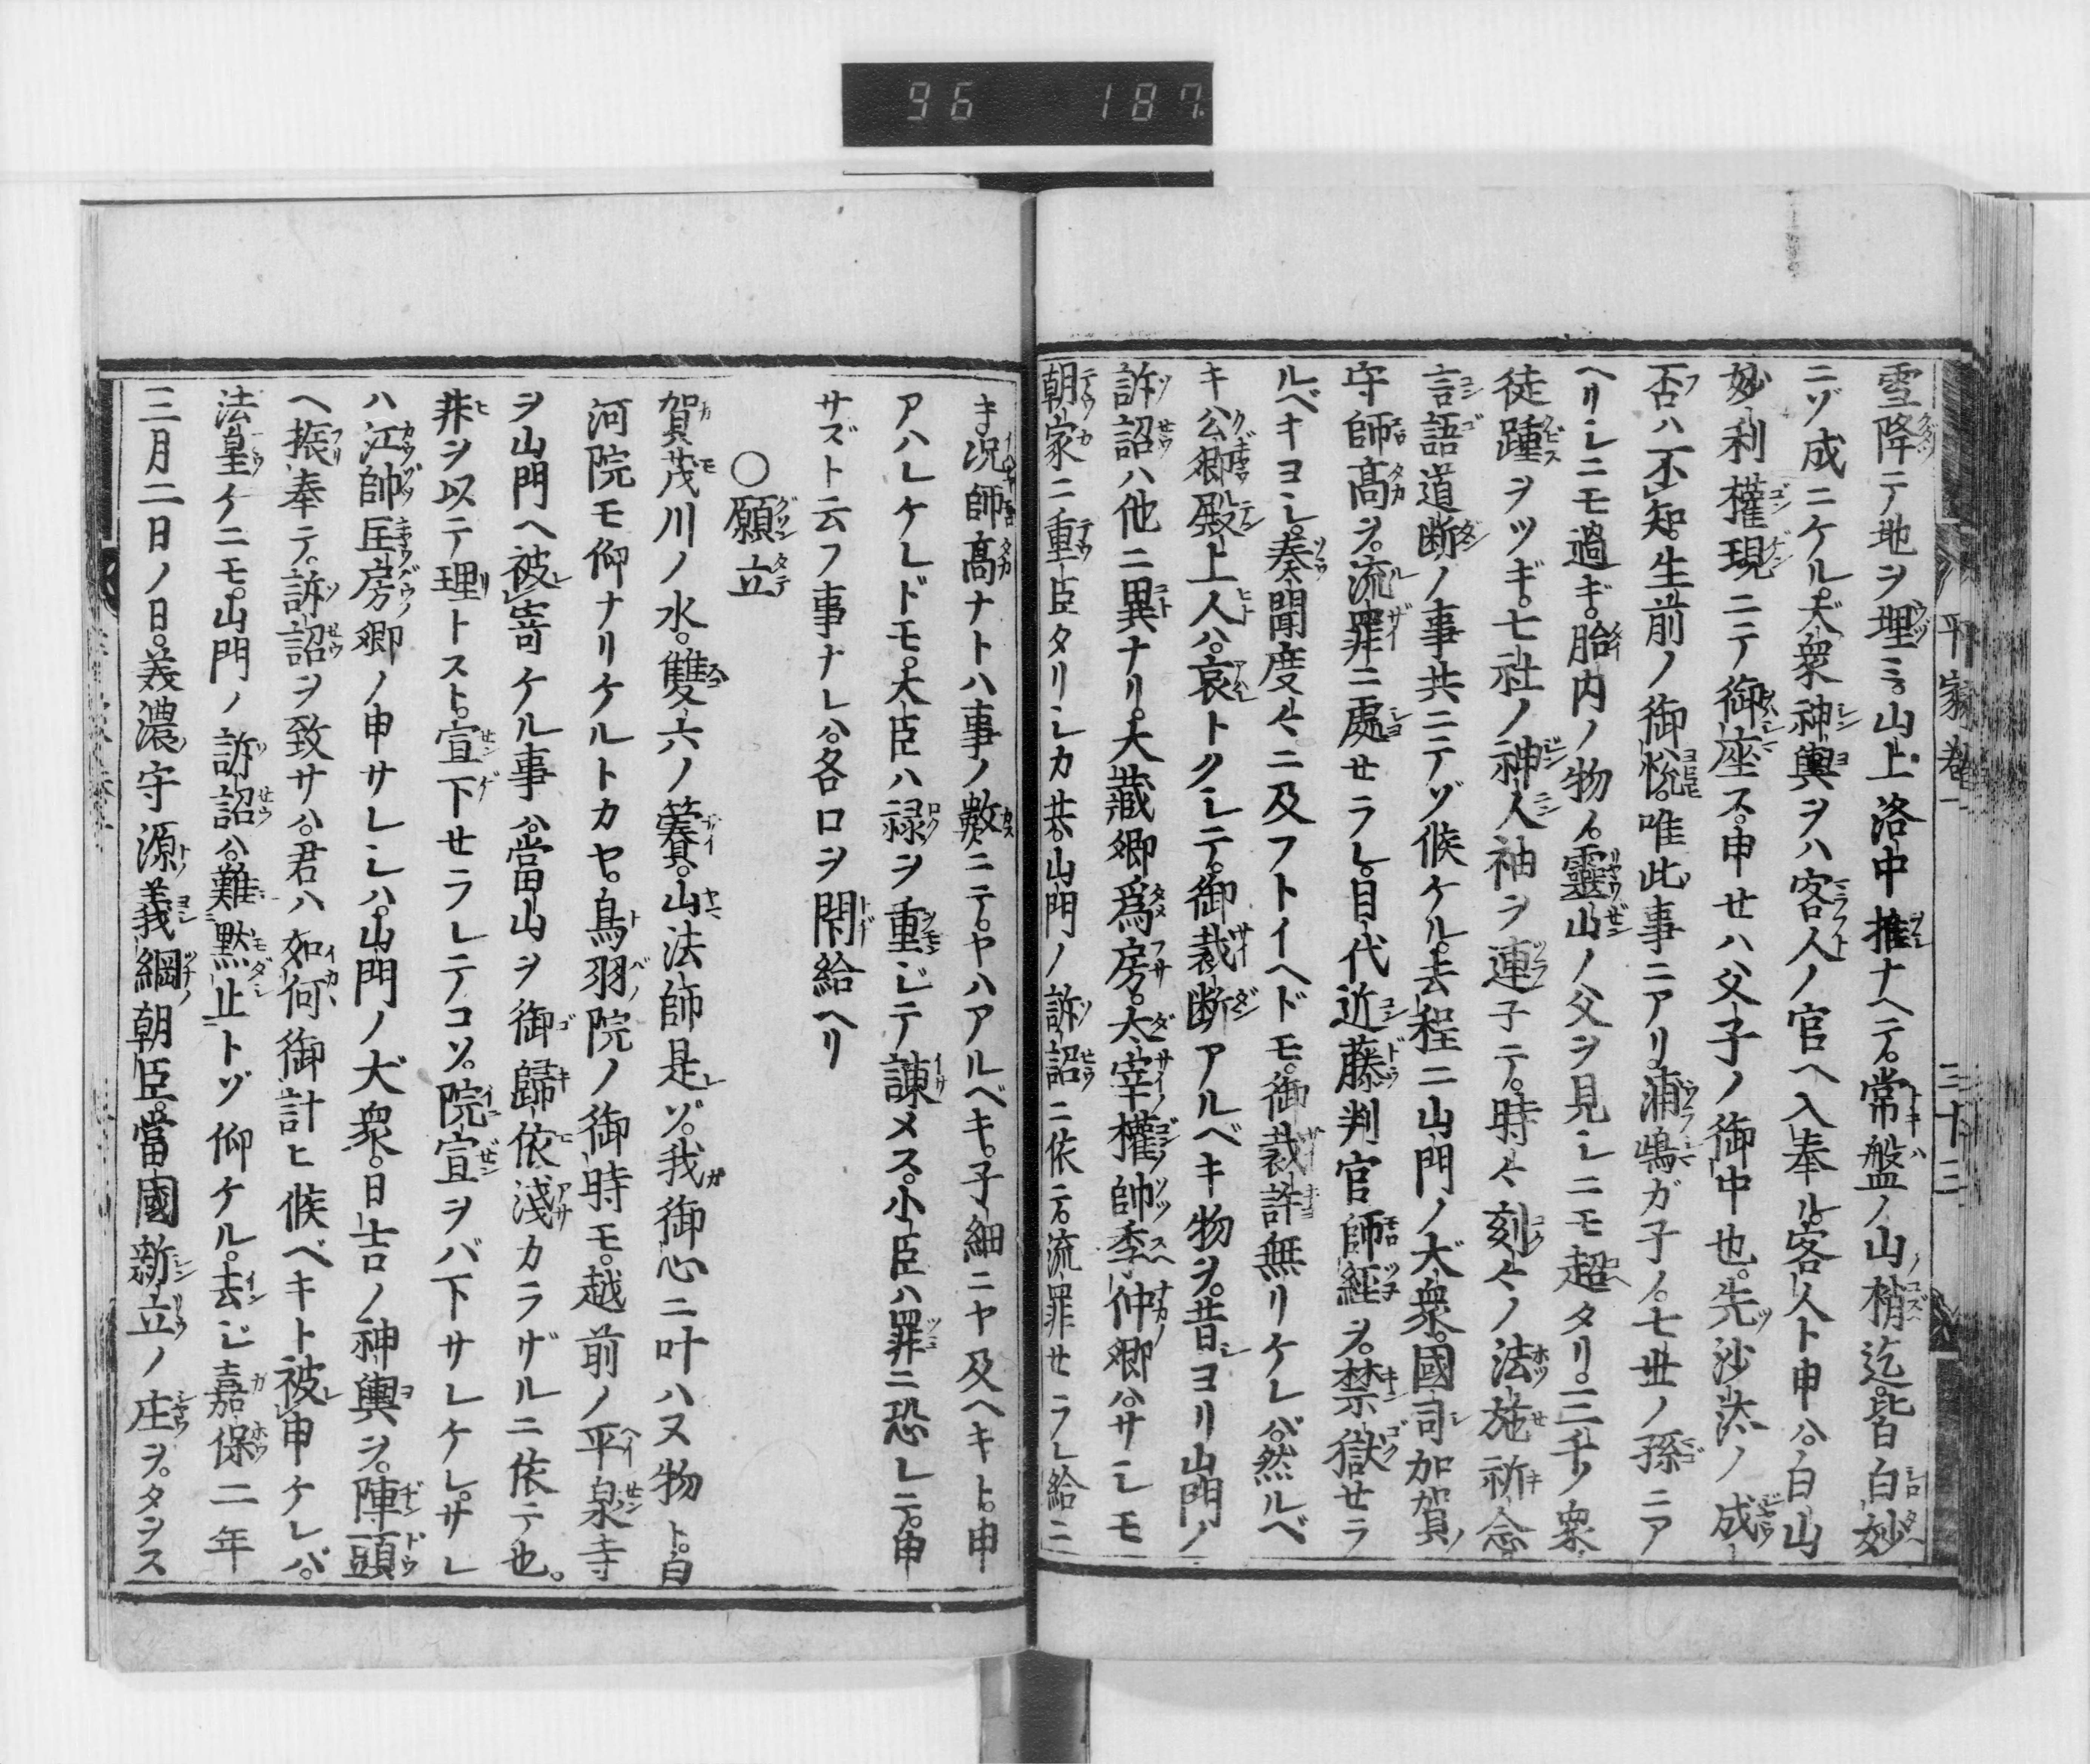 96 187
平家巻一 三十三
雪降テ地ヲ埋ミ。山上洛中推ナヘテ。常盤ノ山梢迄。皆白妙
ニゾ成ニケル。大衆神輿ヲハ客人ノ宮ヘ入奉ル。客人ト申ハ。白山
妙利権現ニテ御座ス。申セハ父子ノ御中也。先沙汰ノ成
否ハ不知。生前ノ御悦。唯此事ニアリ。浦嶋ガ子ノ。七世ノ孫ニア
ヘリシニモ過ギ。胎内ノ物ノ。霊山ノ父ヲ見シニモ超タリ。三千ノ衆
徒踵ヲツギ。七社ノ神人袖ヲ連子テ。時々刻々ノ法施祈念
言語道断ノ事共ニテゾ候ケル。去程ニ山門ノ大衆。國司加賀ノ
守師髙ヲ。流罪ニ處セラレ。目代近藤判官師經ヲ。禁獄セラ
ルベキヨシ。奏聞度々ニ及フトイヘドモ。御裁許無リケレバ。然ルベ
キ公卿殿上人ハ。哀トクシテ。御裁断アルベキ物ヲ。昔ヨリ山門ノ
訴詔ハ他ニ異ナリ。大蔵卿爲房。太宰權帥季仲卿ハ。サシモ
朝家ニ重臣タリシカ共。山門ノ訴詔ニ依テ。流罪セラレ給ニ
キ況師髙ナトハ事ノ數ニテ。ヤハアルベキ。子細ニヤ及ヘキト。申
アハレケレドモ。大臣ハ禄ヲ重ジテ諌メス。小臣ハ罪ニ恐レテ。申
サズト云フ事ナレハ。各口ヲ閇給ヘリ
〇願立
賀茂川ノ水。雙六ノ簺。山法師是ゾ。我御心ニ叶ハヌ物ト。白
河院モ仰ナリケルトカヤ。鳥羽院ノ御時モ。越前ノ平泉寺
ヲ山門ヘ被寄ケル事ハ。當山ヲ御歸依淺カラザルニ依テ也。
非ヲ以テ理トスト。宣下セラレテコソ。院宣ヲバ下サレケレ。サレ
ハ江帥匡房卿ノ申サレシハ。山門ノ大衆。日吉ノ神輿ヲ。陣頭
ヘ振奉テ。訴詔ヲ致サハ。君ハ如何御計ヒ候ベキト被申ケレバ。
法皇ゲニモ。山門ノ訴詔ハ。難黙止トゾ仰ケル。去ジ嘉保二年
三月二日ノ日。美濃守源義綱朝臣。當國新立ノ庄ヲ。タヲス